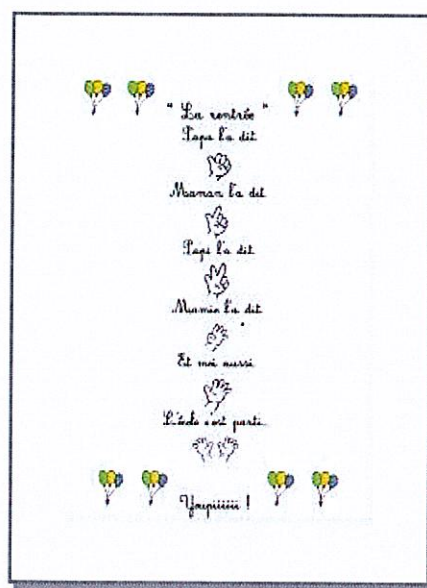 " La rentrée "
Papa l'a dit
Maman l'a dit
Papi l'a dit
Mamie l'a dit
Et moi aussi
L'école c'est parti
Youpiiiiii !